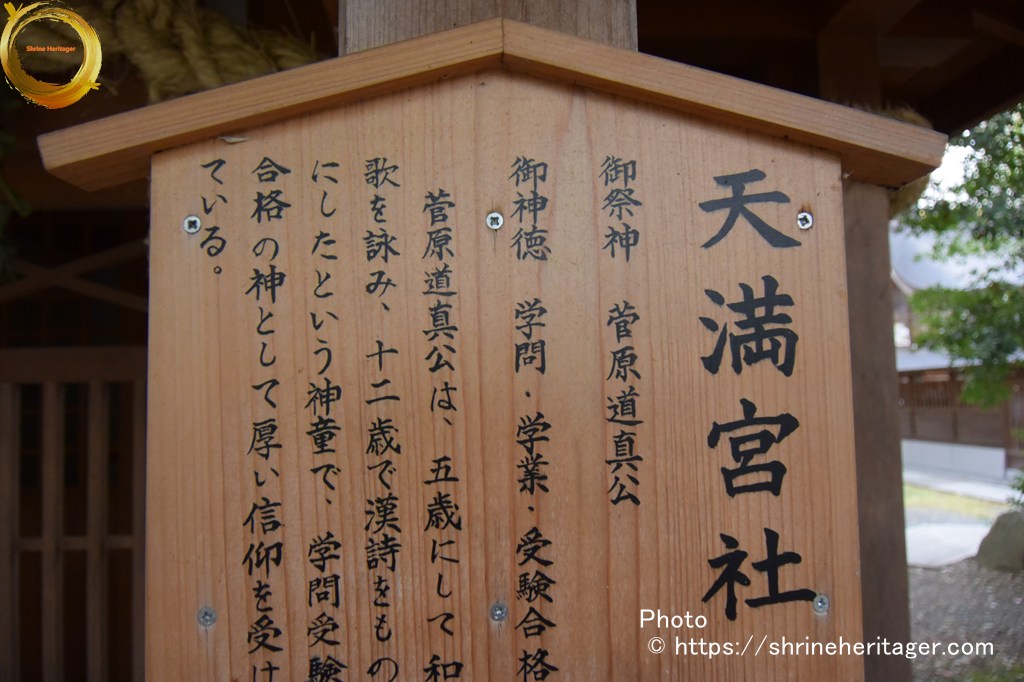 Shrine Heritager
天満宮社
御祭神　菅原道真公
御神徳　学問・学業・受験合格
菅原道真公は、五歳にして和
歌を詠み、十二歳で漢詩をもの
にしたという神童で、学問受験
合格の神として厚い信仰を受け
ている。
Photo
© https://shrineheritager.com/